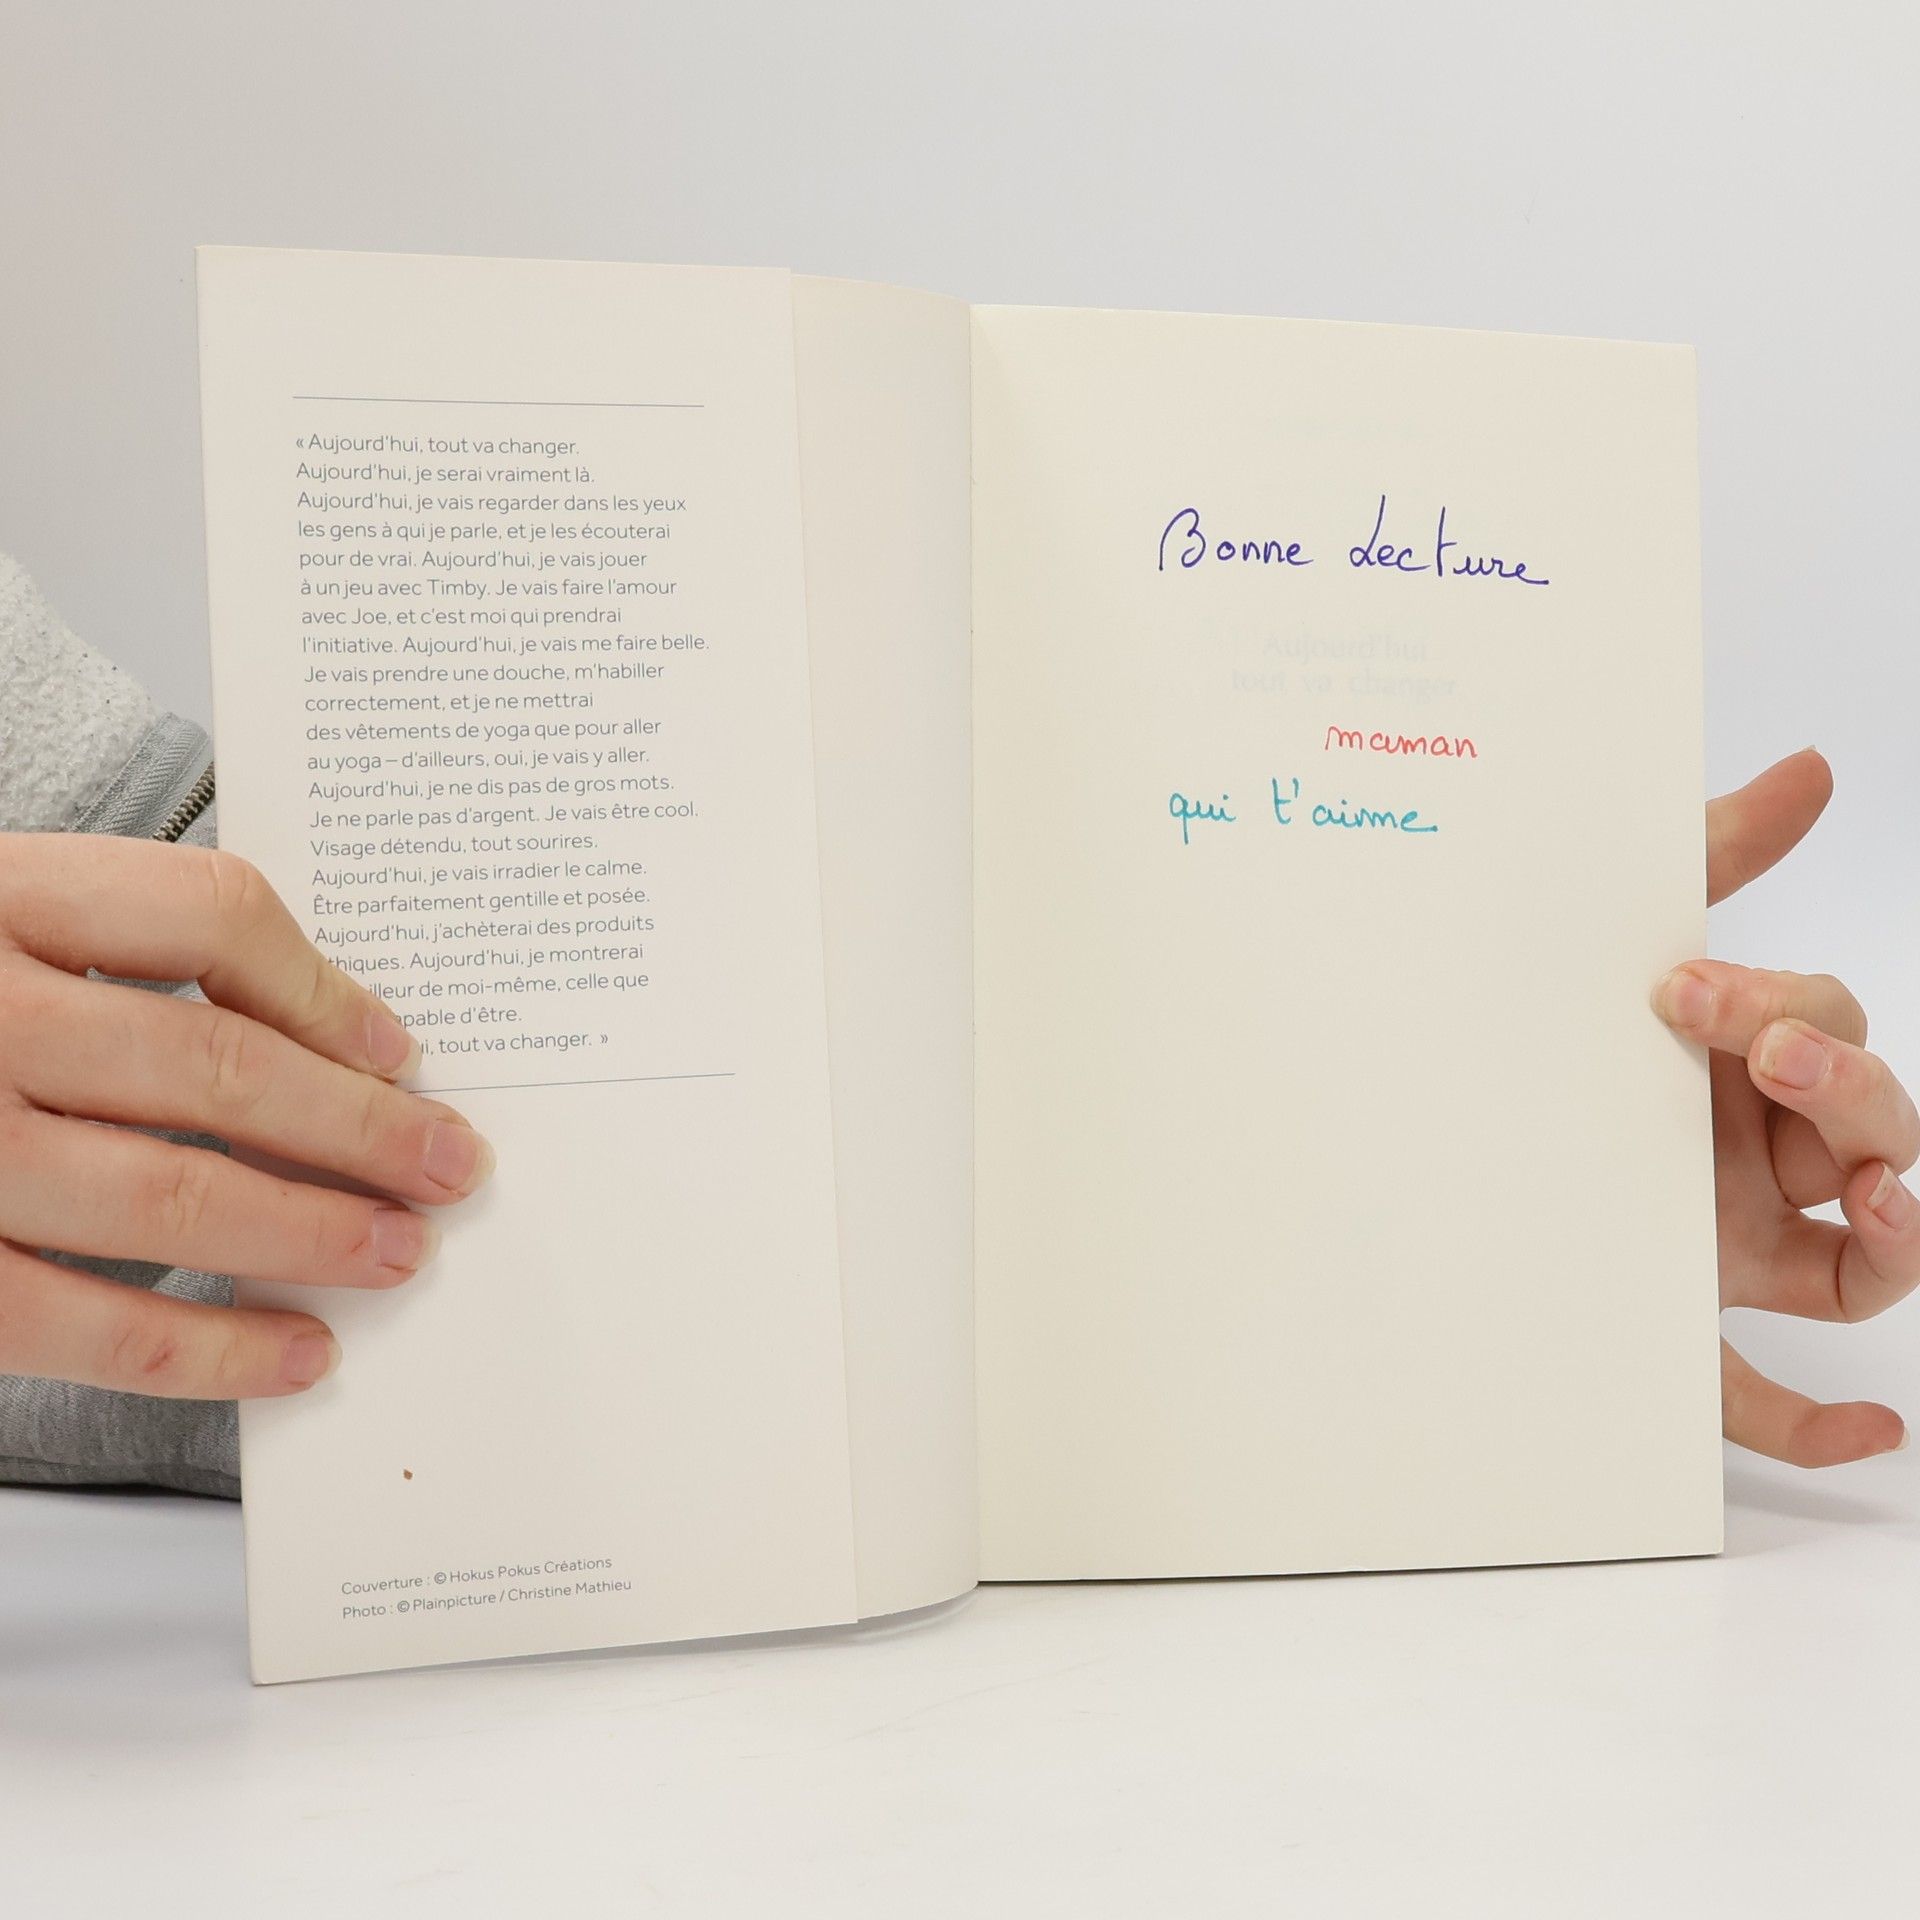 « Aujourd'hui, tout va changer.
Aujourd'hui, je serai vraiment là.
Aujourd'hui, je vais regarder dans les yeux
les gens à qui je parle, et je les écouterai
pour de vrai. Aujourd'hui, je vais jouer
à un jeu avec Timby. Je vais faire l'amour
avec Joe, et c'est moi qui prendrai
l'initiative. Aujourd'hui, je vais me faire belle.
Je vais prendre une douche, m'habiller
correctement, et je ne mettrai
des vêtements de yoga que pour aller
au yoga – d'ailleurs, oui, je vais y aller.
Aujourd'hui, je ne dis pas de gros mots.
Je ne parle pas d'argent. Je vais être cool.
Visage détendu, tout sourires.
Aujourd'hui, je vais irradier le calme.
Être parfaitement gentille et posée.
Aujourd'hui, j'achèterai des produits
thiques. Aujourd'hui, je montrerai
illeur de moi-même, celle que
apable d'être.
ui, tout va changer. »
Couverture : © Hokus Pokus Créations
Photo : © Plainpicture / Christine Mathieu
Bonne Lecture
Aujourd'hui
tout va changer
maman
qui t'aime